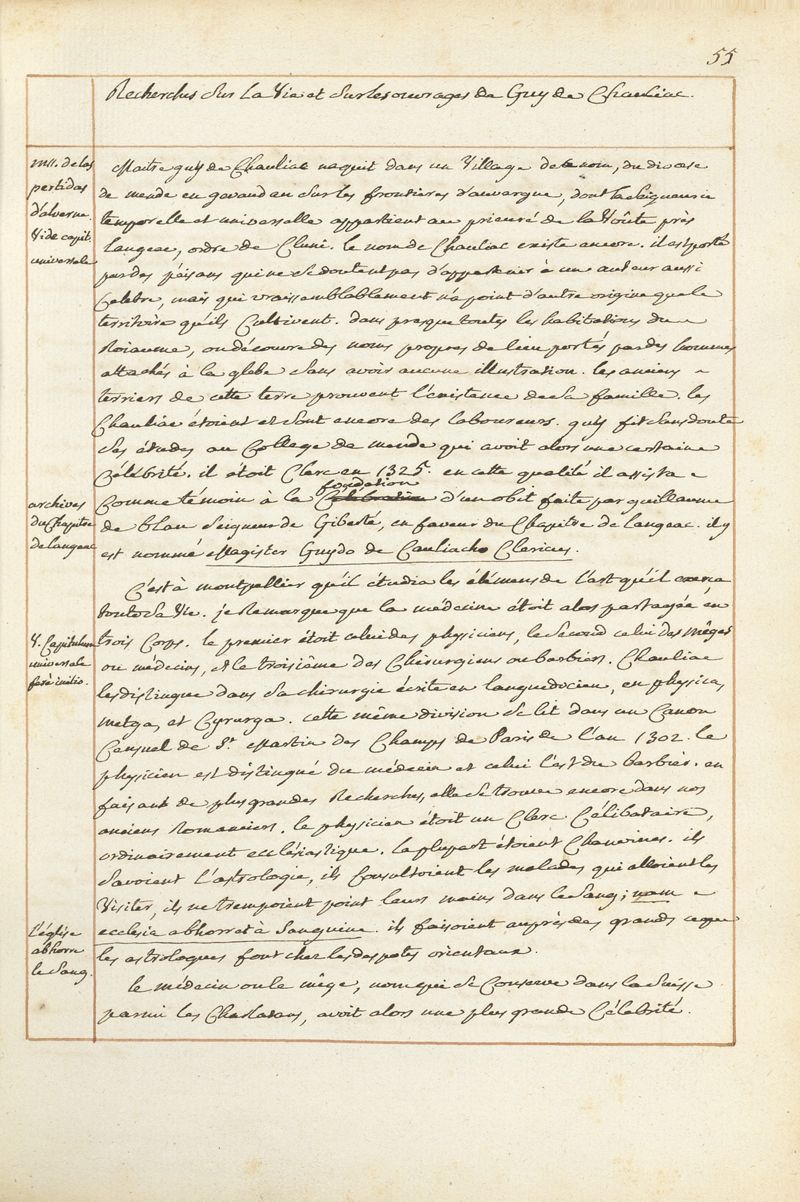 55
Recherches sur la Vie et sur les ouvrages de Guy de Chauliac.
Mss. de las
pertidas
d'alverne.
Vide capit.
universale
Maitre guy de Chauliac naquit dans un Village de ce nom, du diocese
de mende en gevaudan sur les frontieres d'auvergne, dont la seigneurie
temporelle et universelle appartient au prieuré de la Voûte près
langeac, ordre de Cluni. le nom de Chauliac existe encore. il est porté
par des païsans qui ne se doutent pas d'appartenir à un auteur aussi
Celebre, mais qui vraisemblablement n'a point d'autre origine que le
territoire qu'ils Cultivent. dans presque toutes les habitations du
Roiaume, on découvre des noms propres de lieu portés par des hommes
attachés à la glebe sans avoir aucune illustration. les anciens
terriers de cette terre prouvent l'existence de sa famille. les
Chauliac étoient et sont encore des laboureurs. guy fit sans doute
ses études au College de mende qui avoit alors une certaine
Célébrité. il étoit Clerc en 1325. en cette qualité il assista
fondation
Comme témoin à la Célébration d'un obit faite par guillaume
de blau seigneur de Gibesté, en faveur du Chapitre de langeac. il y
est nommé Magister Guydo de Cauliacho Clericus.
archives
du Chapitre
de langeac
C'est à montpellier qu'il étudia les élémens de l'art qu'il exerça
toute sa Vie. je Remarque que la médecine étoit alors partagée en
trois Corps. le premier étoit celui des physiciens, le second celui des mêges
ou médecins, et le troisième des Chirurgiens ou barbiers. Chauliac
les distingue dans sa chirurgie écrite en languedocien, en physica,
metga, et Cyrurga. cette même division se lit dans un Canon
Censuel de St. Martin des Champs de Paris de l'an 1302. le
physicien est distingué du médecin et celui l'est du barbier. en
faisant de plus grandes Recherches, elle se trouve encore dans nos
anciens Romanciers. le physicien étoit un Clerc Célibataire,
ordinairement ecclésiastique. la plupart étoient Chanoines. ils
savoient l'astrologie, ils Consultoient les malades qui alloient les
Visiter, ils ne trempoient point leurs mains dans le sang; nam
ecclesia abhorret à Sanguine. ils faisoient auprès des grands ce que
les astrologues font chez les despotes orientaux.
V. Capitulum
universale
fere initio.
l'église
abhorre
le sang.
le médecin ou le mêge, nom qui se Conserve dans la suisse
parmi les Charlatans, avoit alors une plus grande Célébrité.